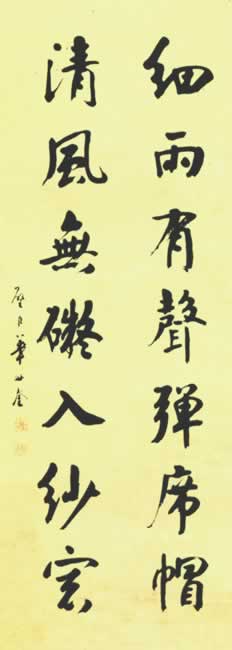 細雨有聲彈席帽
清風無礙入紗窗
璧臣華世奎